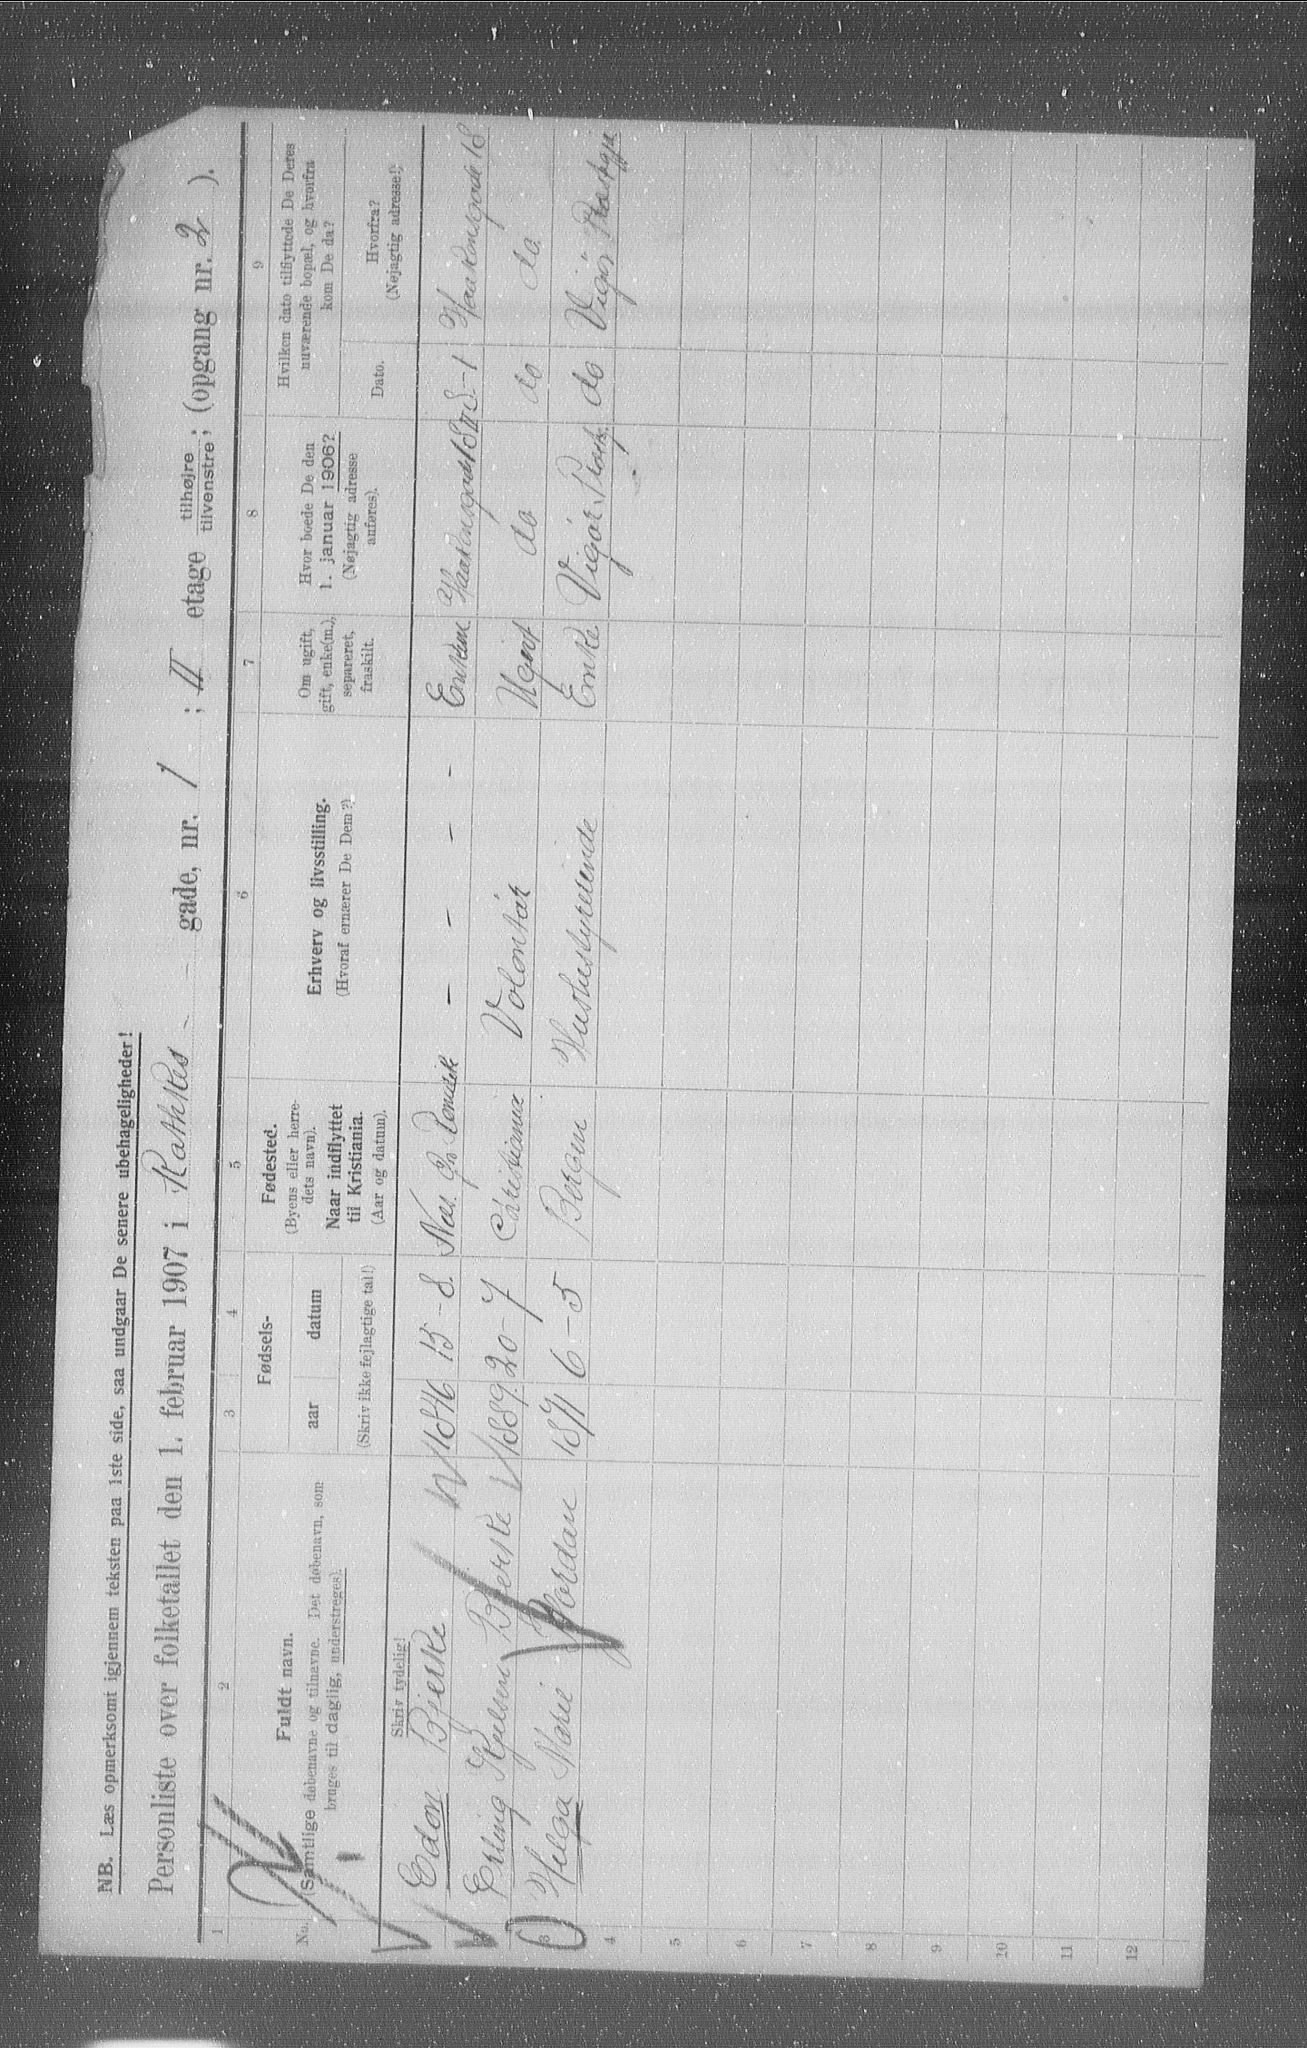 NB. Læs opmerksomt igjennem teksten paa 1ste side, saa undgaar De senere ubehageligheder!
Personliste over folketallet den 1. februar 1907 i Rathkes gade, nr. 1; II etage tilhøjre tilvenstre; (opgang nr. 2).
1 2 3 4 5 6 7 8 9
No.
Fuldt navn.
(Samtlige døbenavne og tilnavne. Det døbenavn, som
bruges til daglig, understreges).
Fødsels-
aar datum
(Skriv ikke fejlagtige tal!)
Fødested.
(Byens eller herre-
dets navn).
Naar indflyttet
til Kristiania.
(Aar og datum).
Erhverv og livsstilling.
(Hvoraf ernærer De Dem?)
Om ugift,
gift, enke(m.),
separeret,
fraskilt.
Hvor boede De den
1. januar 1906?
(Nøjagtig adresse
anføres).
Hvilken dato tilflyttede De Deres
nuværende bopæl, og hvorfra
kom De da?
Dato.
Hvorfra?
(Nøjagtig adresse!)
Skriv tydelig!
Edon Bjerke 1846 15-8. Næs - - - - Enkem Haakonsgade 18 - 1 Haakonsgade 18
Erling Bjerke 1889 20-7 Christiania Volontär Ugift do do do
3 Helga Marie Jordan 1871 6-5 Bergen Husbestyrerinde Enke do
4
5
6
7
8
9
10
11
12